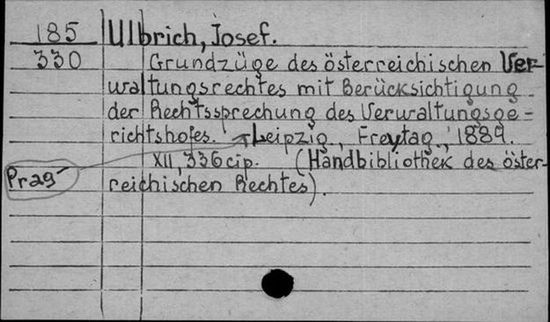 185 Ulbrich, Josef.
330 Grundzüge des österreichischen Ver-
waltungsrechtes mit Berücksichtigung
der Rechtssprechung des Verwaltungsge-
richtshofes. Leipzig, Freytag, 1884.
XII, 336 (Handbibliothek des öster-
Prag reichischen Rechtes).